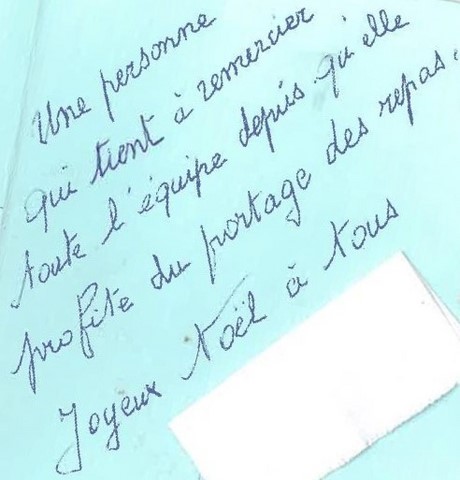 Une personne
qui tient à remercier
toute l'équipe depuis qu'elle
profite du portage des repas.
Joyeux Noël à tous